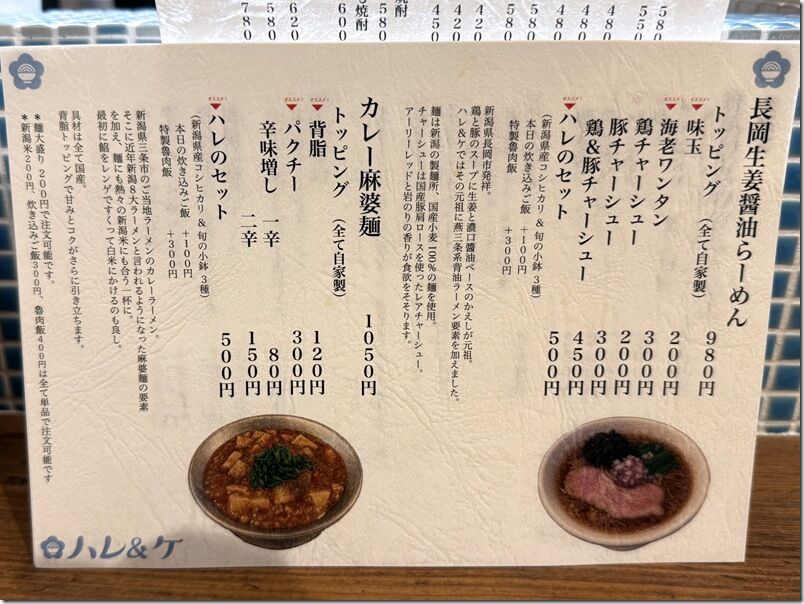 580
550
580
480
480
580
420
420
450
焼酎
600
620
580
780
長岡生姜醤油らーめん 980円
トッピング (全て自家製)
オススメ!
味玉 200円
オススメ!
海老ワンタン 300円
鶏チャーシュー 200円
豚チャーシュー 300円
鶏&豚チャーシュー 450円
オススメ!
ハレのセット 500円
(新潟県産コシヒカリ & 旬の小鉢 3種)
本日の炊き込みご飯 +100円
特製魯肉飯 +300円
新潟県長岡市発祥。
鶏と豚のスープに生姜と濃口醤油ベースのかえしが元祖。
ハレ&ケではその元祖に燕三条系背油ラーメン要素を加えました。
麺は新潟の製麺所、国産小麦100%の麺を使用。
チャーシューは国産豚肩ロースを使ったレアチャーシュー。
アーリーレッドと岩のりの香りが食欲をそそります。
カレー麻婆麺 1050円
トッピング (全て自家製)
オススメ!
背脂 120円
オススメ!
パクチー 300円
辛味増し 一辛 80円
二辛 150円
オススメ!
ハレのセット 500円
(新潟県産コシヒカリ & 旬の小鉢 3種)
本日の炊き込みご飯 +100円
特製魯肉飯 +300円
新潟県三条市のご当地ラーメンのカレーラーメン。
そこに近年新潟8大ラーメンと言われるようになった麻婆麺の要素
を加え、麺にも熱々の新潟米にも合う一杯に。
最初に餡をレンゲですくって白米にかけるのも良し。
具材は全て国産。
背脂トッピングで甘みとコクがさらに引き立ちます。
*麺大盛り 200円で注文可能です。
*新潟米200円、炊き込みご飯300円、魯肉飯400円は全て単品で注文可能です
ハレ&ケ